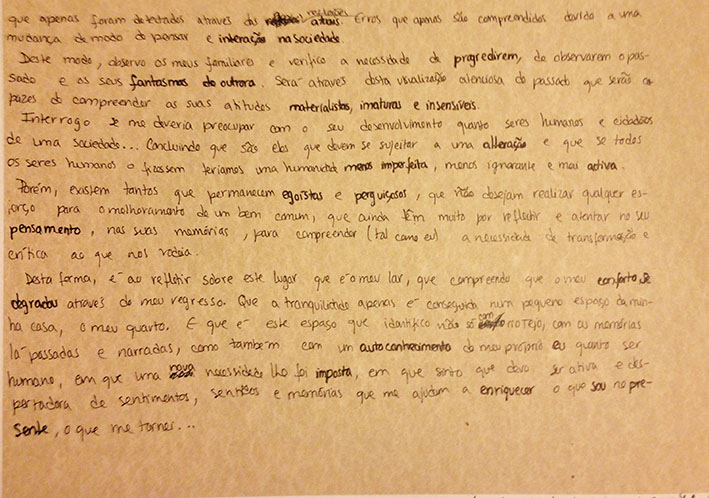 que apenas foram detectados através das reflexões atuais. Erros que apenas são compreendidos devido a uma
mudança de modo de pensar e interação na sociedade.
Deste modo, observo os meus familiares e verifico a necessidade de progredirem, de observarem o pas-
sado e os seus fantasmas de outrora. Será através desta visualização silenciosa do passado que serão ca
pazes de compreender as suas atitudes materialistas, imaturas e insensíveis.
Interrogo se me deveria preocupar com o seu desenvolvimento quanto seres humanos e cidadãos
de uma sociedade... Concluindo que são eles que devem se sujeitar a uma alteração e que se todos
os seres humanos o fizessem teríamos uma humanidade menos imperfeita, menos ignorante e mai activa.
Porém, existem tantos que permanecem egoístas e perguiçosos, que não desejam realizar qualquer es-
forço para o melhoramento de um bem comum, que ainda têm muito por reflectir e atentar no seu
pensamento, nas suas memórias, para compreender (tal como eu) a necessidade de transformação e
crítica ao que nos rodeia.
Desta forma, é ao refletir sobre este lugar que é o meu lar, que compreendo que o meu conforto se
degradou através do meu regresso. Que a tranquilidade apenas é conseguida num pequeno espaço da min-
ha casa, o meu quarto. E que é este espaço que identifico não só com rio Tejo, com as memórias
lá passadas e narradas, como também com um autoconhecimento do meu próprio eu quanto ser
humano, em que uma nova necessidade lhe foi imposta, em que sinto que devo ser ativa e des-
pertadora de sentimentos, sentidos e memórias que me ajudam a enriquecer o que sou no pre-
sente, o que me tornei...